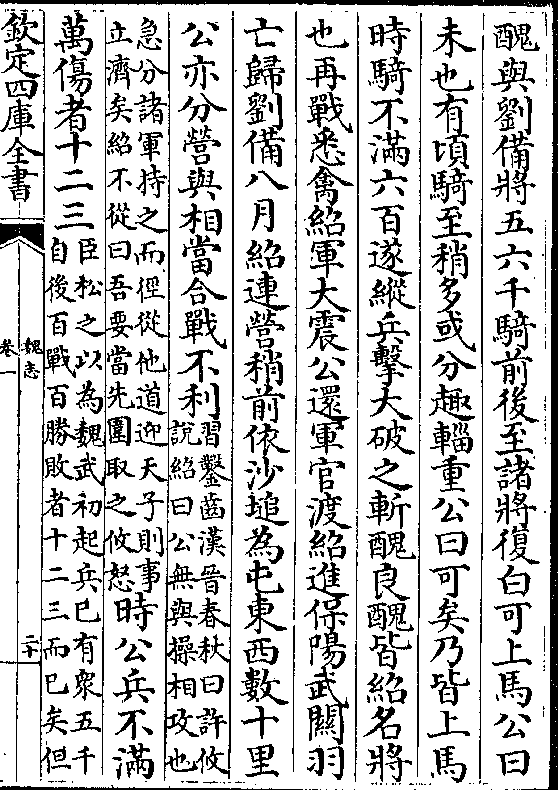 醜與劉備將五六千騎前後至諸將復白可上馬公曰
未也有頃騎至稍多或分趣輜重公曰可矣乃皆上馬
時騎不滿六百遂縱兵擊大破之斬醜良醜皆紹名將
也再戰悉禽紹軍大震公還軍官渡紹進保陽武關羽
亡歸劉備八月紹連營稍前依沙塠為屯東西數十里
公亦分營與相當合戰不利
習鑿齒漢晉春秋曰許攸
說紹曰公無與操相攻也
急分諸軍持之而徑從他道迎天子則事
立濟矣紹不從曰吾要當先圍取之攸怒
時公兵不滿
萬傷者十二三
臣松之以為魏武初起兵已有衆五千
自後百戰百勝敗者十二三而已矣但
欽定四庫全書
魏志
卷一
二十